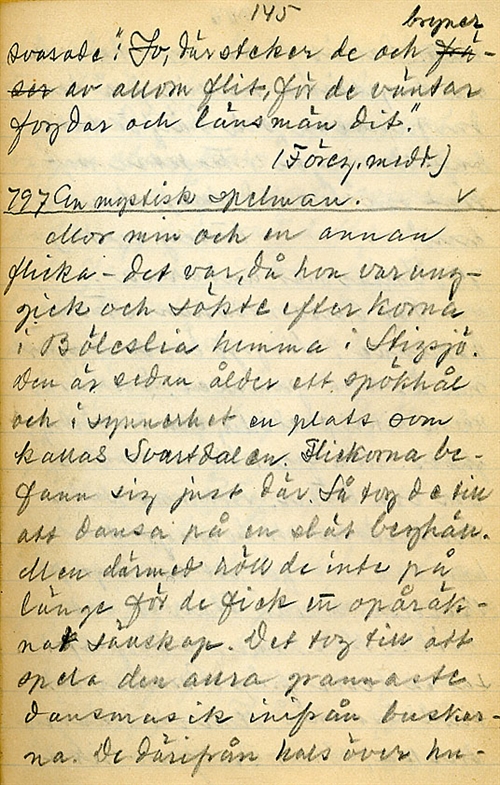 145
bryner
svarade": Jo, där steker de och frä-
ser av allom flit, för de väntar
fogdar och länsmän dit."
(Föreg. medd.)
797 En mystisk spelman. ✓
Mor min och en annan
flicka – det var, då hon var ung –
gick och sökte efter korna
i Böleslia hemma i Stigsjö.
Den är sedan ålder ett spökhål
och i synnerhet en plats som
kallas Svartdalen. Flickorna be-
fann sig just där. Så tog de till
att dansa på en slät berghäll.
Men därmed höll de inte på
länge för de fick en opåräk-
nat sänskap. Det tog till att
spela den allra grannaste
dansmusik inifrån buskar-
na. De därifrån hals över hu-